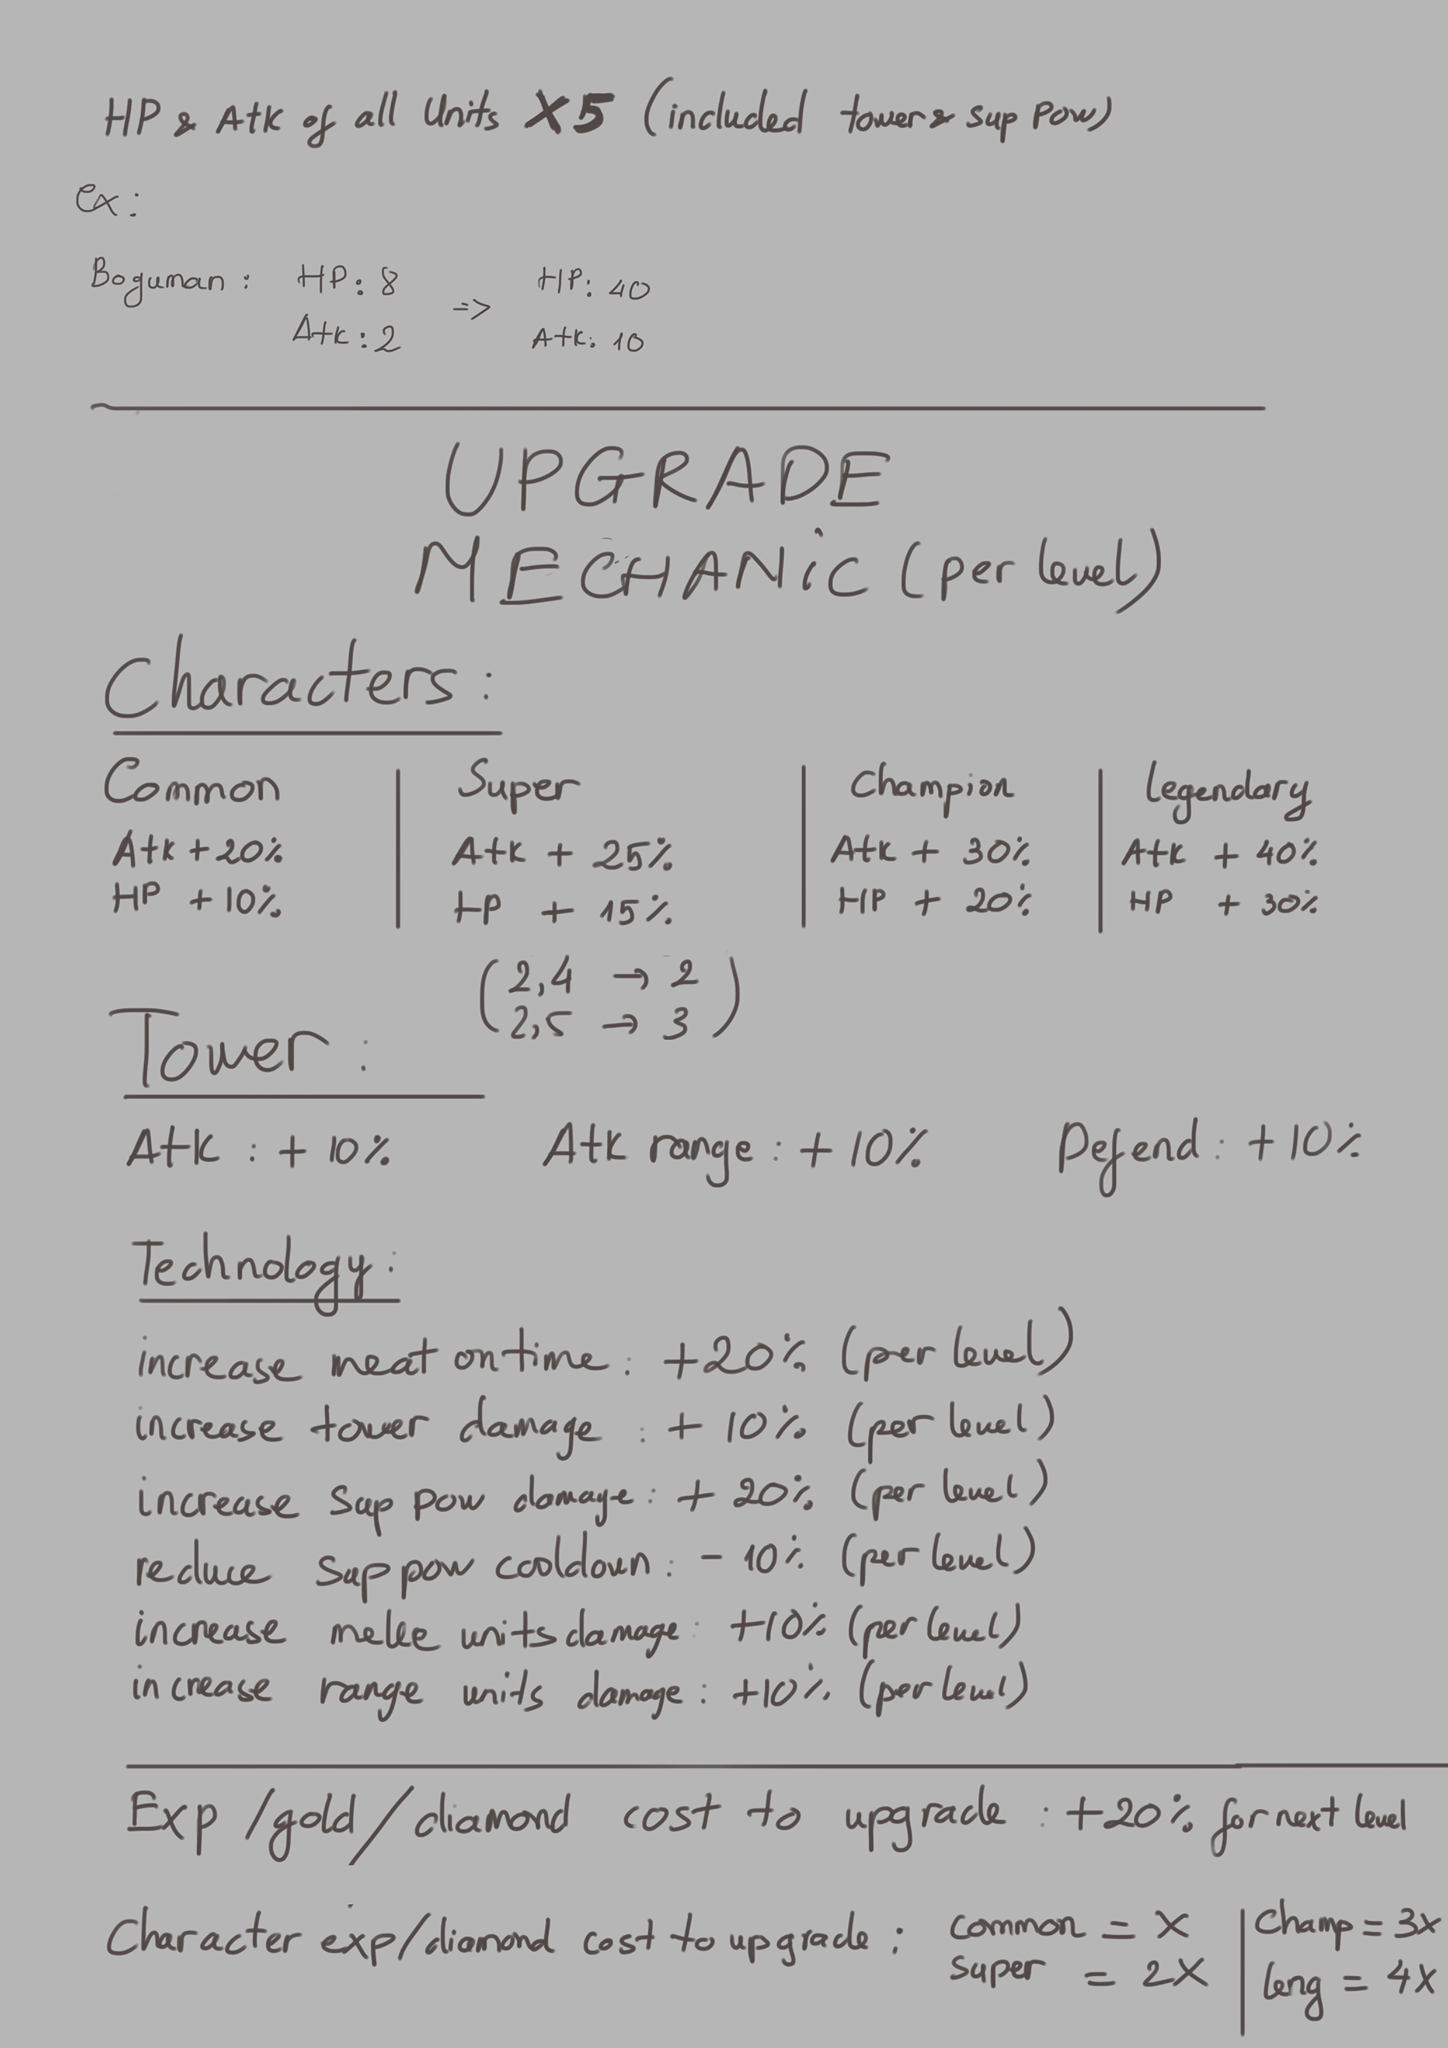 HP & Atk of all Units X5 (included tower & sup pow)
ex:
Boguman: HP: 8 => HP: 40
Atk: 2 Atk: 10
UPGRADE
MECHANiC (per level)
Characters:
Common Super Champion Legendary
Atk +20% Atk + 25% Atk + 30% Atk + 40%
HP +10% HP + 15% HP + 20% HP + 30%
(2,4 → 2
2,5 → 3)
Tower:
Atk: +10% Atk range: +10% Defend: +10%
Technology:
increase meat on time: +20% (per level)
increase tower damage: +10% (per level)
increase sup pow damage: +20% (per level)
reduce sup pow cooldown: -10% (per level)
increase melle units damage: +10% (per level)
increase range units damage: +10% (per level)
Exp/gold/diamond cost to upgrade: +20% for next level
Character exp/diamond cost to upgrade: common = X Champ = 3x
super = 2X leng = 4x